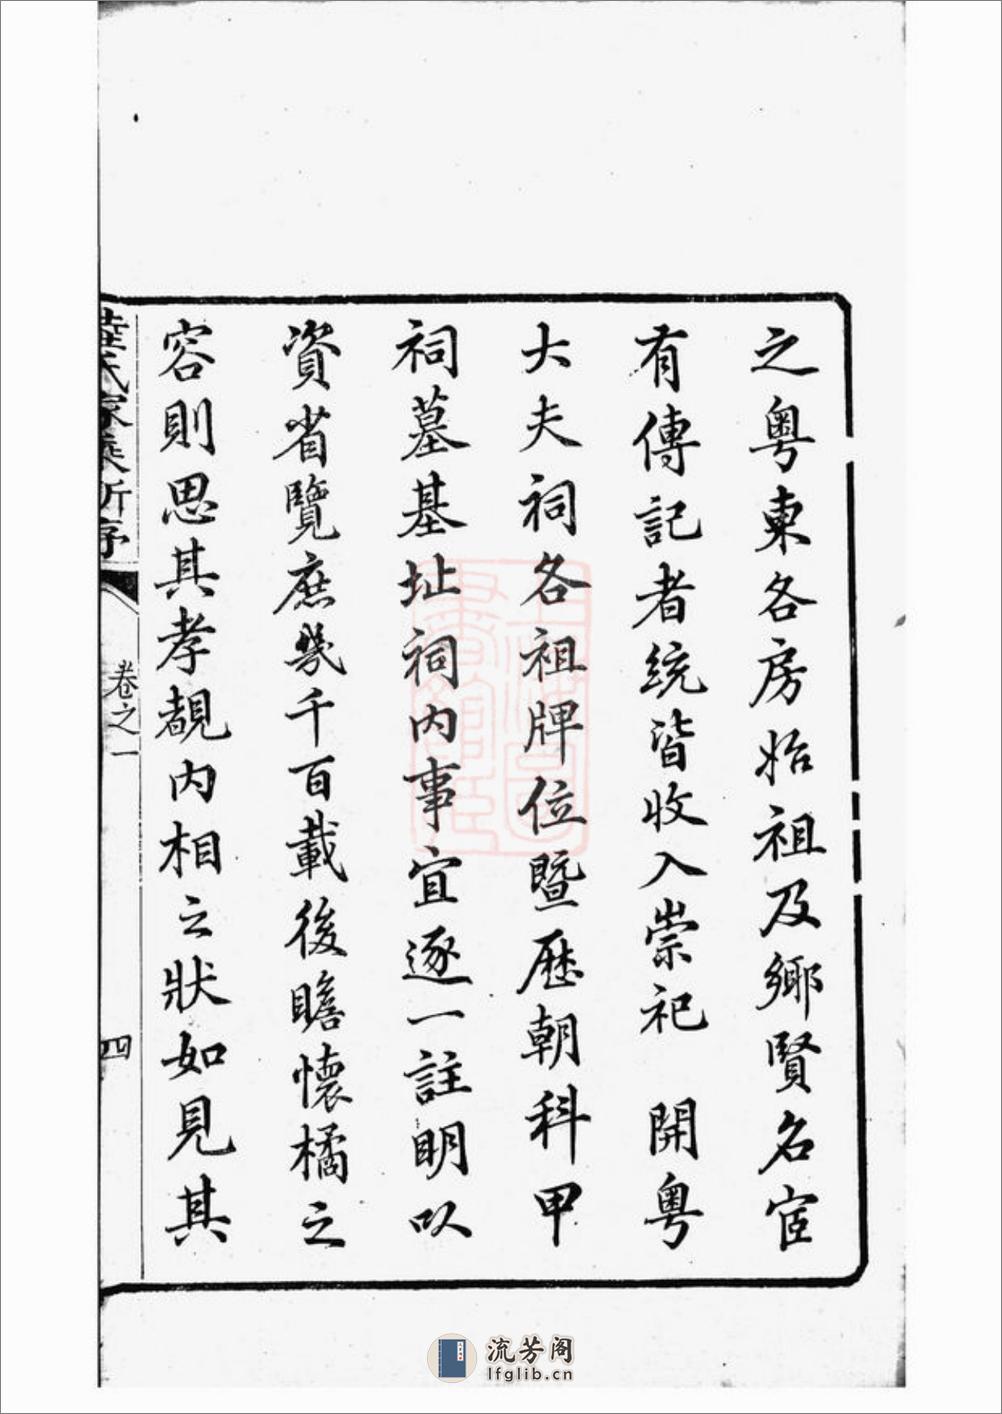 之粵東各房始祖及鄉賢名宦
有傳記者統皆收入崇祀　開粵
大夫祠各祖牌位暨歷朝科甲
祠墓基址祠內事宜逐一註明以
資省覽庶幾千百載後瞻懷橘之
容則思其孝覩內相之狀如見其
陸氏家乘新序
卷之一
四
流芳阁
lfglib.cn